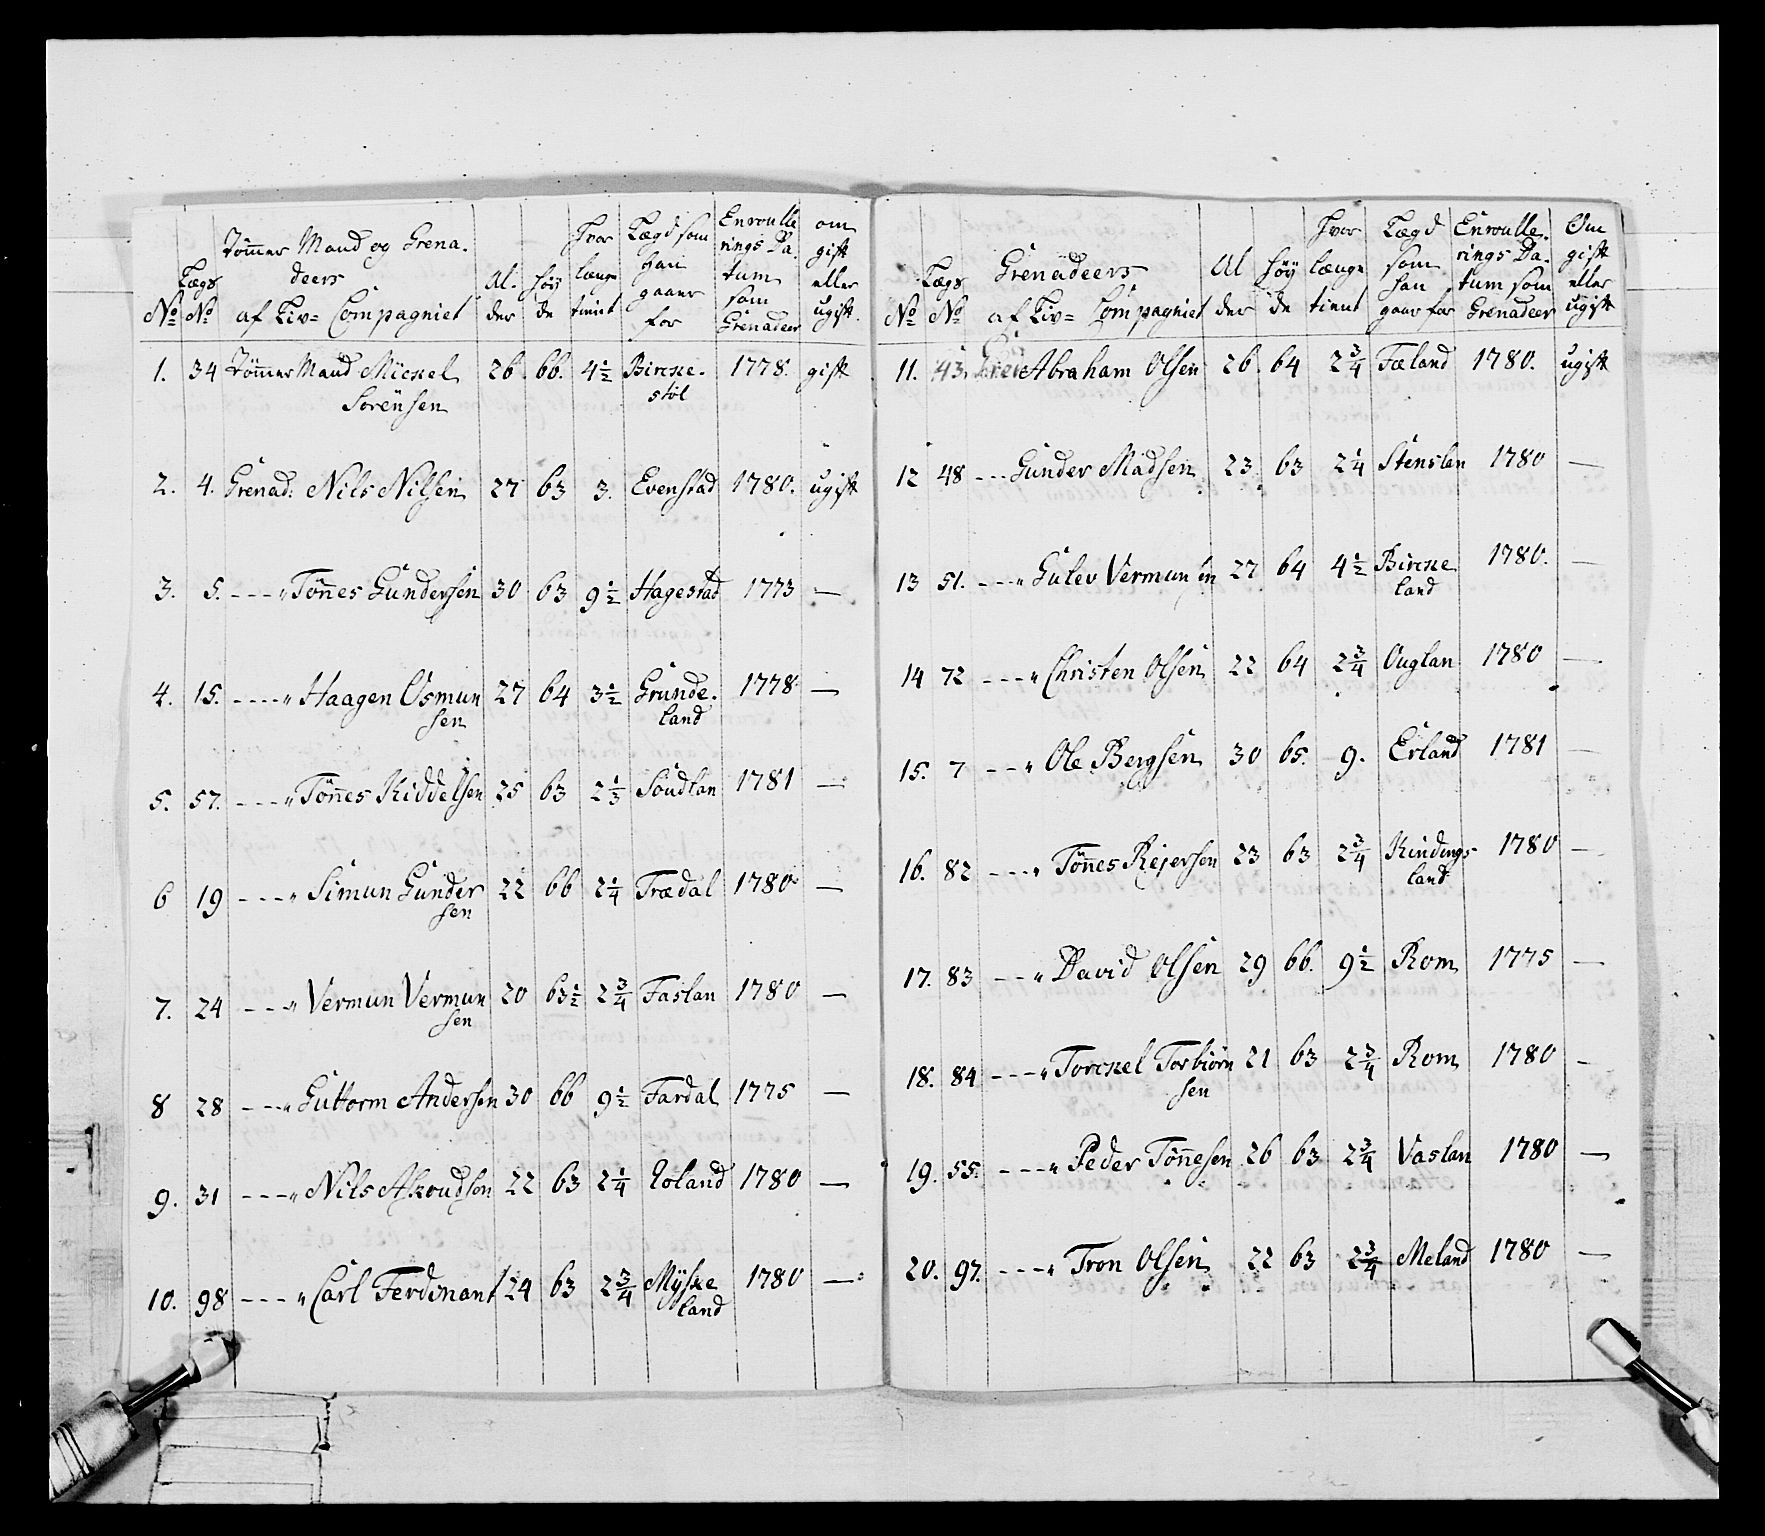 No Lægs No Tømmer Mand og Grenadeers af Liv= Compagniet Alder Høyde Hvor længe tient Lægd som han gaaer for Enroullerings Datum som Grenadeer om gift eller ugift
1. 34 Tømmer Mand Mickel Sørensen 26 66. 4½ Birckestøl 1778. gift
2. 4. Grenad: Nils Nilsen 27 63 3. Evenstad 1780. ugift
3. 5. - - - „ Tønnes Gundersen 30 63 9½ Hagestad 1773 —
4. 15. - - - - „ Haagen Osmunsen 27 64 3½ Grundeland 1778 —
5. 57. - - - - „ Tønnes Kiddelsen 25 63 2⅓ Soudlan 1781 —
6 19 - - - - „ Simun Gundersen 22 66 2¼ Trædal 1780 —
7. 24 - - - „ Vermun Vermunsen 20 63½ 2¾ Faslan 1780 —
8 28 - - - „ Guttorm Andersen 30 66 9½ Fardal 1775 —
9. 31 - - - - „ Nils Aanoudsen 22 63 2¼ Roland 1780 —
10. 98 - - - - „ Carl Ferdinant 24 63 2¾ Myskeland 1780 —
No Lægs No Grenadeers af Liv= Compagniet Alder Høyde Hvor længe tient Lægd som han gaar for Enroullerings Datum som Grenadeer Om gift eller ugift
11. 43. Abraham Olsen 26 64 2¾ Fæland 1780. ugift
12 48 - - - Gunder Madsen 23 63 2¼ Stenslan 1780 —
13 51. - - - - „ Gulev Vermunsen 27 64 4½ Birckeland 1780. —
14 72 - - - - „ Christen Olsen 22 64 2¾ Ouglan 1780 —
15. 7 - - - „ Ole Bergsen 30 65. 9. Erland 1781 —
16. 82 - - - - „ Tønnes Rejersen 23 63 2¾ Kindingsland 1780 —
17. 83 - - - „ David Olsen 29 66. 9½ Rom 1775 —
18. 84 - - - - „ Torckel Torbiørnsen 21 63 2¾ Rom 1780 -
19. 55. - - - - „ Peder Tønnesen 26 63 2¾ Vaslan 1780 —
20. 97. - - - - „ Tron Olsen 22 63 2¾ Meland 1780 —